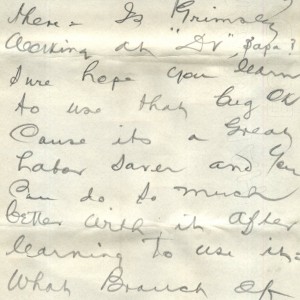 there. Is Grimsley
working at "Dr", Papa?
Sure hope you learn
to use that bug OK
Cause its a great
Labor Saver and You
Can do so much
better with it after
learning to use it=
What Branch of